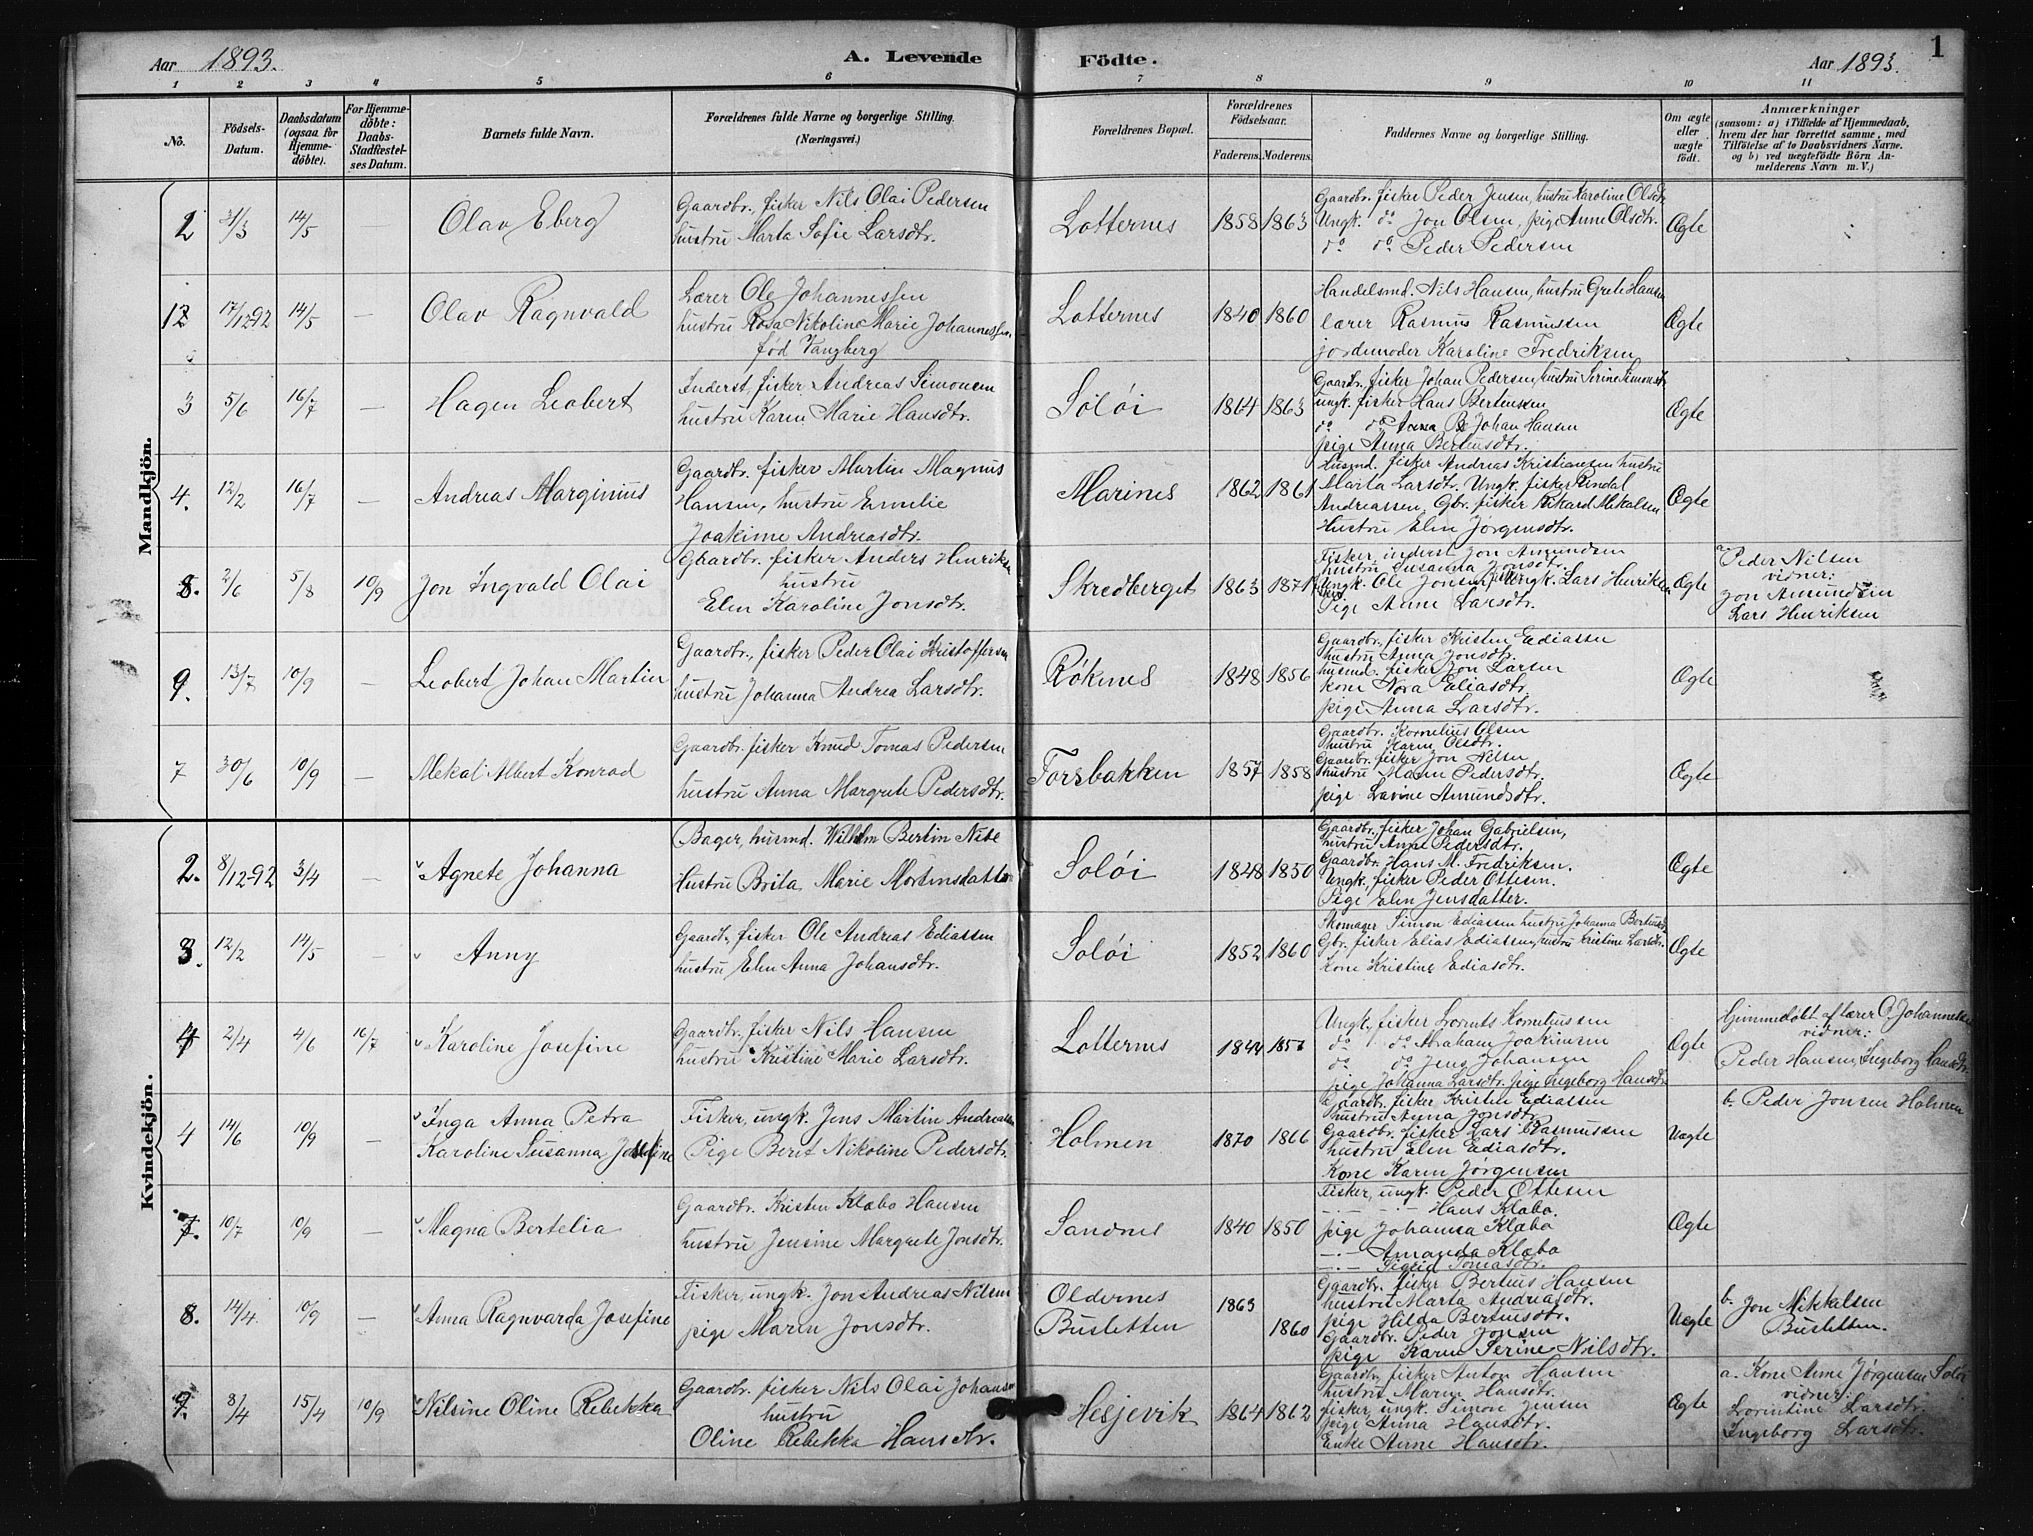 Aar 1893. A. Levende Födte. Aar 1893. 1
1 2 3 4 5 6 7 8 9 10 11
No. Födsels-Datum. Daabsdatum (ogsaa for Hjemme-döbte). For Hjemme-döbte: Daabs-Stadfæstel-ses Datum. Barnets fulde Navn. Forældrenes fulde Navne og borgerlige Stilling. (Næringsvei.) Forældrenes Bopæl. Forældrenes Födselsaar. Faderens. Moderens. Faddernes Navne og borgerlige Stilling. Om ægte eller uægte födt. Anmærkninger (saasom: a) i Tilfælde af Hjemmedaab, hvem der har forrettet samme, med Tilföielse af to Daabsvidners Navne. og b) ved uægtefödte Börn An-melderens Navn m. V.)
Mandkjön.
2 31/3 14/5 — Olav Eberg
Gaardbr., fisker Nils Olai Pedersen
hustru Marta Sofie Larsdtr.
Lotternes 1858 1863
Gaardbr. fisker Peder Jensen, hustru Karoline Olsdtr
Ungk. do Jon Olsen, pige Anne Olsdtr.
do do Peder Pedersen
Ægte
12 17/12-92 14/5 — Olav Ragnvald
Lærer Ole Johannessen
hustru Rosa Nikoline Marie Johannessen
fød Vangberg
Lotternes 1840 1860
Handelsmd. Nils Hansen, hustru Grete Hansen
lærer Rasmus Rasmussen
jordemoder Karoline Fredriksen
Ægte
3 5/6 16/7 — Hagen Leobert
Inderst, fisker Andreas Simonsen
hustru Karen Marie Hansdtr.
Soløi 1864 1863
Gaardbr. fisker Johan Pedersen, hustru Serine Simonsdtr
ungk. fisker Hans Bertinssen
do do Johan Hansen
pige Anna Bertensdtr.
Ægte
4. 12/2 16/7 — Andreas Marginius
Gaardbr. fisker Martin Magnus
Hansen, hustru Emilie
Joakime Andreasdtr.
Marines 1862 1861
Husmd. fisker Andreas Kristiansen hustru
Marita Larsdtr. Ungk. fisker Rindal
Andreassen. Gbr. fisker Rikard Mekalsen
Hustru Elen Jørgensdtr.
Ægte
8. 2/6 5/8 10/9 Jon Ingvald Olai
Gaardbr. fisker Anders Henriksen
hustru
Elen Karoline Jonsdtr.
Skredberget 1863 1871
Fisker, inderst Jon Amundsen
hustru Susanna Jonsdtr.
Ungk. Ole Jonsen, Ungk. Lars Henriksen
Pige Anne Larsdtr.
Ægte
a Peder Nilsen
vidner:
Jon Amundsen
Lars Henriksen
9. 13/7 10/9 — Leobert Johan Martin
Gaardbr., fisker Peder Olai Kristoffersen
hustru Johanna Andrea Larsdtr.
Røknes 1848 1856
Gaardbr. fisker Kristen Ediassen
hustru Anna Jonsdtr.
husmd. fisker Jon Larsen
kone Nora Eliasdtr.
pige Anna Larsdtr.
Ægte
7 30/6 10/9 — Mekal Albert Konrad
Gaardbr. fisker Knud Tomas Pedersen
hustru Anna Margrete Pedersdtr.
Forsbakken 1857 1858
Gaardbr. Kornelius Olsen
hustru Karen Olsdtr.
Gaardbr. fisker Jon Nilsen
hustru Maren Pedersdtr.
pige Lavine Amundsdtr.
Ægte
Kvindekjön.
2. 8/12-92 3/4 — Agnete Johanna
Bager, husmd. Wilhelm Bertin Nebe
Hustru Brita Marie Mortensdatter
Soløi 1828 1850
Gaardbr., fisker Johan Gabrielsen,
hustru Anne Pedersdtr.
Gaardbr. Hans M. Fredriksen.
Ungk., fisker Peder Ottesen.
Pige Elen Jensdatter.
Ægte
3. 12/2 14/5 — Anny
Gaardb., fisker Ole Andreas Ediassen
hustru Elen Anna Johansdtr.
Soløi 1852 1860
Skomager Simon Ediassen hustru Johanna Bertensd.
Gbr. fisker Elias Ediassen, hustru Kristine Larsdtr.
Kone Kristine Ediasdtr.
Ægte
4 2/4 4/6 16/7 Karoline Josefine
Gaardbr. fisker Nils Hansen
hustru Kristine Marie Larsdtr.
Lotternes 1844
Ungk., fisker Lornts Korneliussen
do do Abraham Joakimsen
do do Jens Johansen
pige Johanna Larsdtr. pige Ingeborg Hansdtr
Ægte
Hjemmedøbt af lærer O. Johannessen
vidner:
Peder Hansen, Ingeborg Hansdtr.
4 14/6 10/9 — Inga Anna Petra
Karoline Susanna Josefine
Fisker, ungk. Jens Martin Andreassen
Pige Berit Nikoline Pedersdtr.
Holmen 1870 1866
Gaardbr. fisker Kristen Ediassen
hustru Anna Jonsdtr.
Gaardbr. fisker Lars Rasmussen
hustru Elen Ediasdtr.
Kone Karen Jørgensen
Uægte
b. Peder Jonsen Holmen
7. 10/7 10/9 — Magna Bertelia
Gaardbr. Kristen Klæbo Hansen
hustru Jensine Margrete Jonsdtr.
Sandnes 1840 1850
Fisker, ungk. Peder Ottesen
— · — Hans Klæbo.
pige Johanna Klæbo
— · — Amanda Klæbo
— · — Sigrid Tomasdtr.
Ægte
8. 14/4 10/9 — Anna Ragnvarda Josefine
Fisker, ungk. Jon Andreas Nilsen
pige Maren Jonsdtr.
Oldernes
Busletten
1863 1860
Gaardbr. fisker Bertius Hansen
hustru Marta Andreasdtr.
pige Hilda Bertensdtr.
Gaardbr. Peder Jonsen
pige Karen Serine Nilsdtr.
Uægte
b. Jon Mikkalsen
Busletten.
9. 8/4 15/4 10/9 Nilsine Oline Rebekka
Gaardbr. fisker Nils Olai Johansen
hustru
Oline Rebekka Hansdtr.
Hesjevik 1864 1862
Gaardbr. fisker Anton Hansen
hustru Maren Hansdtr.
fisker, ungk. Simon Jensen
pige Anna Hansdtr.
Enke Anne Hansdtr.
Ægte
a. Kone Anne Jørgensen Soløi
vidner:
Lorentine Larsdtr.
Ingeborg Larsdtr.